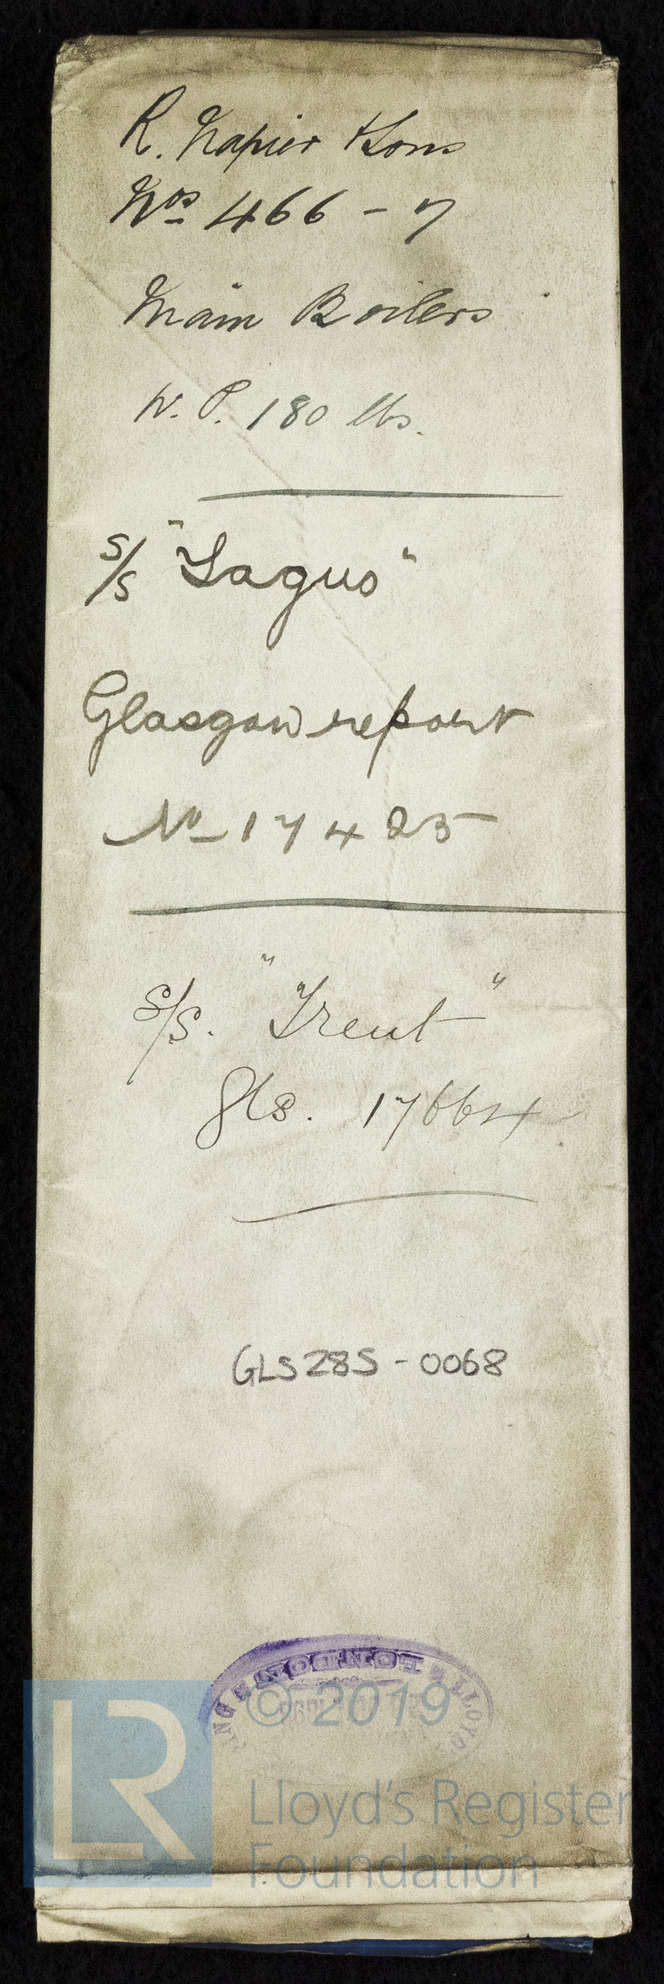 R. Napier & Sons
Nos 466 - 7
Main Boilers
W.P. 180 lbs.
S/S "Tagus"
Glasgow report
No 17425
S/S. "Trent"
Gls. 17664
GLS285-0068
LONDON
LLOYD'S
© 2019
LR
Lloyd's Register
Foundation